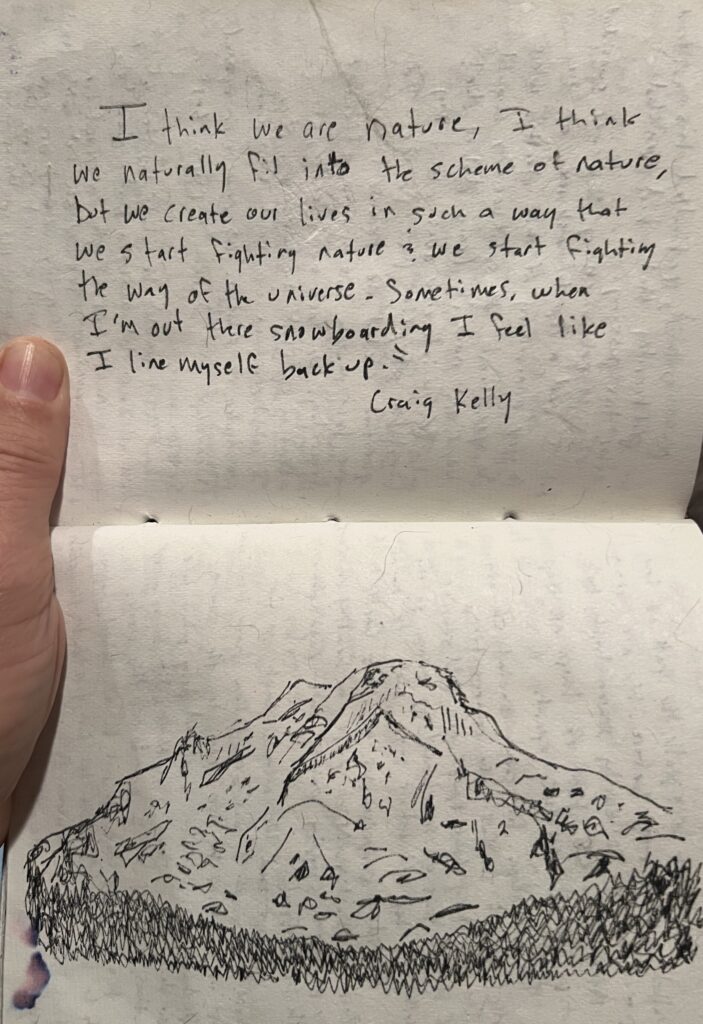 I think we are nature, I think
we naturally fit into the scheme of nature,
but we create our lives in such a way that
we start fighting nature & we start fighting
the way of the universe. Sometimes, when
I'm out there snowboarding I feel like
I line myself back up."
Craig Kelly